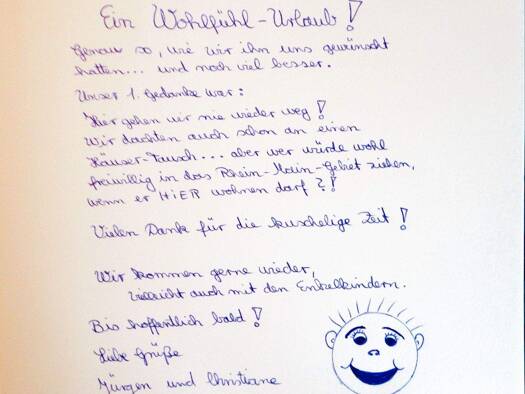 Ein Wohlfühl-Urlaub!
Genau so, wie wir ihn uns gewünscht
hatten... und noch viel besser.
Unser 1. Gedanke war:
Hier gehen wir nie wieder weg!
Wir dachten auch schon an einen
Häuser-Tausch... aber wer würde wohl
freiwillig in das Rhein-Main-Gebiet ziehen,
wenn er HiER wohnen darf?!
Vielen Dank für die kuschelige Zeit!
Wir kommen gerne wieder,
vielleicht auch mit den Enkelkindern.
Bis hoffentlich bald!
Liebe Grüße
Jürgen und Christiane